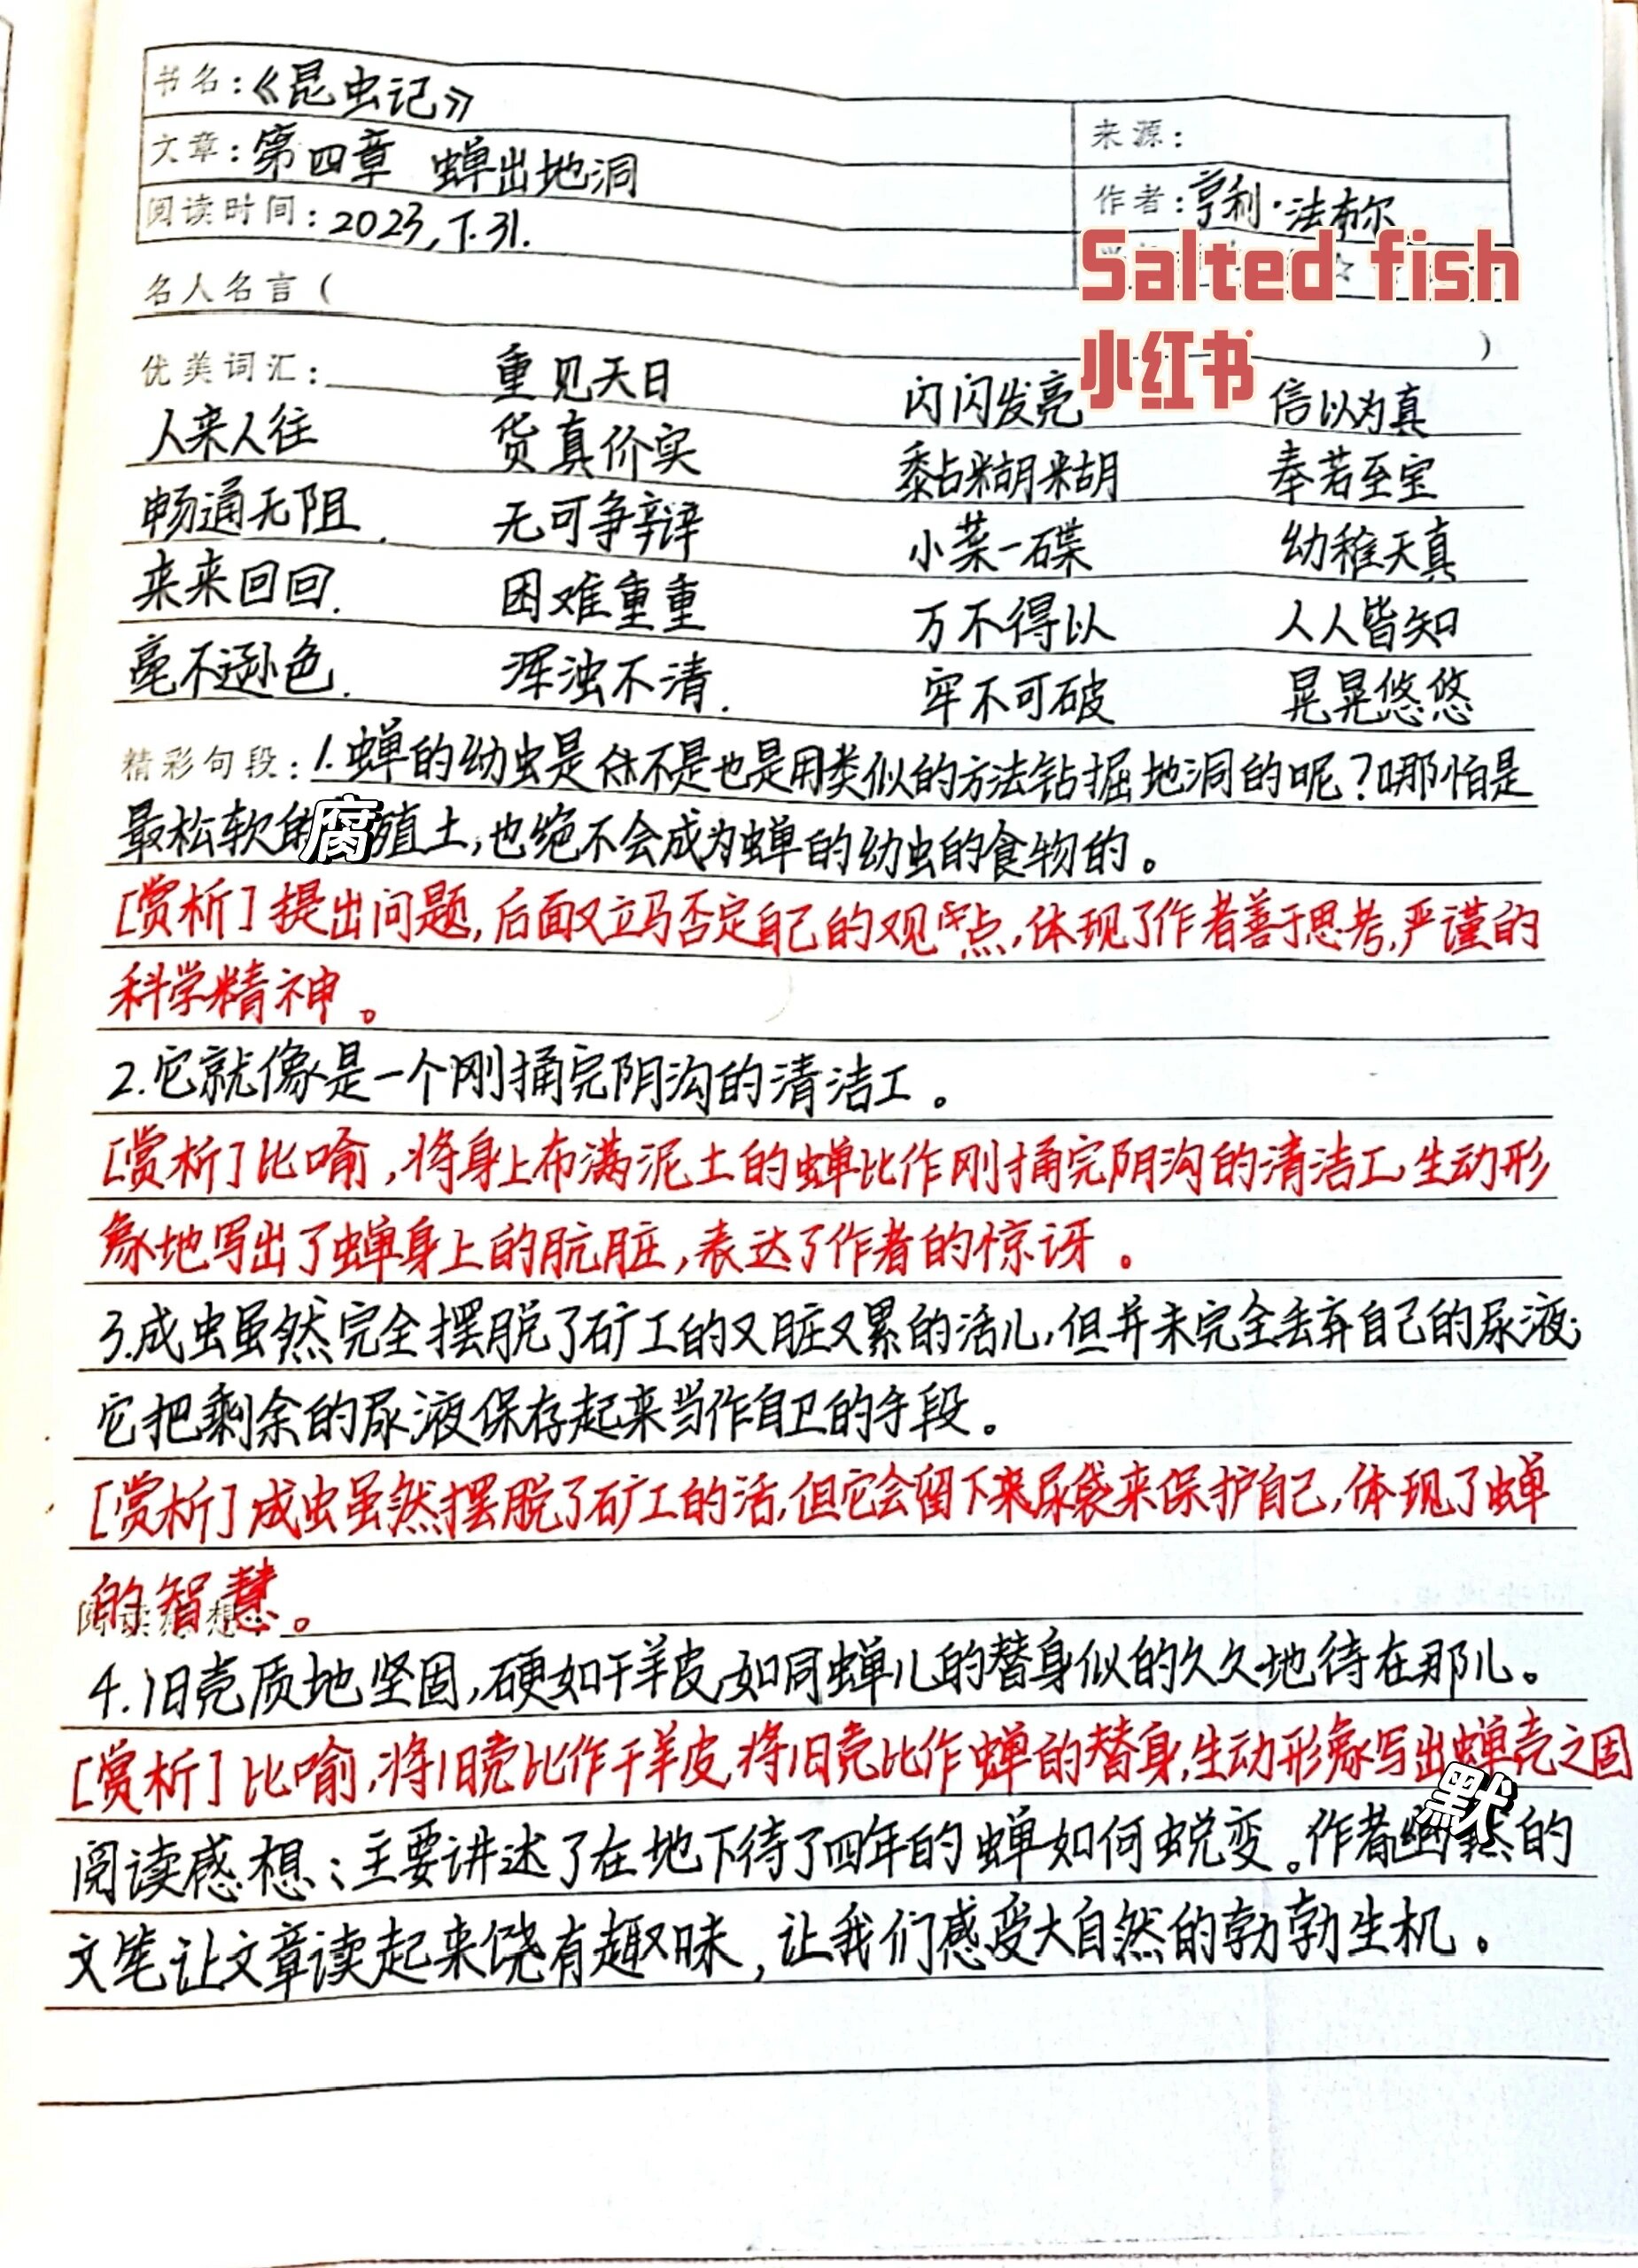 书名：《昆虫记》
来源：
文章：第四章 蝉出地洞
作者：亨利·法布尔
阅读时间：2023,7.31.
Salted fish
小红书
名人名言（ ）
优美词汇： 重见天日 闪闪发亮 信以为真
人来人往 货真价实 黏糊糊 奉若至宝
畅通无阻. 无可争辩 小菜一碟 幼稚天真
来来回回. 困难重重 万不得以 人人皆知
毫不逊色. 浑浊不清. 牢不可破 晃晃悠悠
精彩句段：1.蝉的幼虫是不是也是用类似的方法钻掘地洞的呢？哪怕是
最松软的腐殖土，也绝不会成为蝉的幼虫的食物的。
[赏析]提出问题，后面又立马否定自己的观点，体现了作者善于思考，严谨的
科学精神。
2.它就像是一个刚捅完阴沟的清洁工。
[赏析]比喻，将身上布满泥土的蝉比作刚捅完阴沟的清洁工，生动形
象地写出了蝉身上的肮脏，表达了作者的惊讶。
3.成虫虽然完全摆脱了矿工的又脏又累的活儿，但并未完全丢弃自己的尿液；
它把剩余的尿液保存起来当作自卫的手段。
[赏析]成虫虽然摆脱了矿工的活，但它会留下来尿袋来保护自己，体现了蝉
的智慧。
4.旧壳质地坚固，硬如干羊皮，如同蝉儿的替身似的久久地待在那儿。
[赏析]比喻，将旧壳比作干羊皮，将旧壳比作蝉的替身，生动形象写出蝉壳之固
阅读感想：主要讲述了在地下待了四年的蝉如何蜕变。作者幽默的
文笔让文章读起来饶有趣味，让我们感受大自然的勃勃生机。